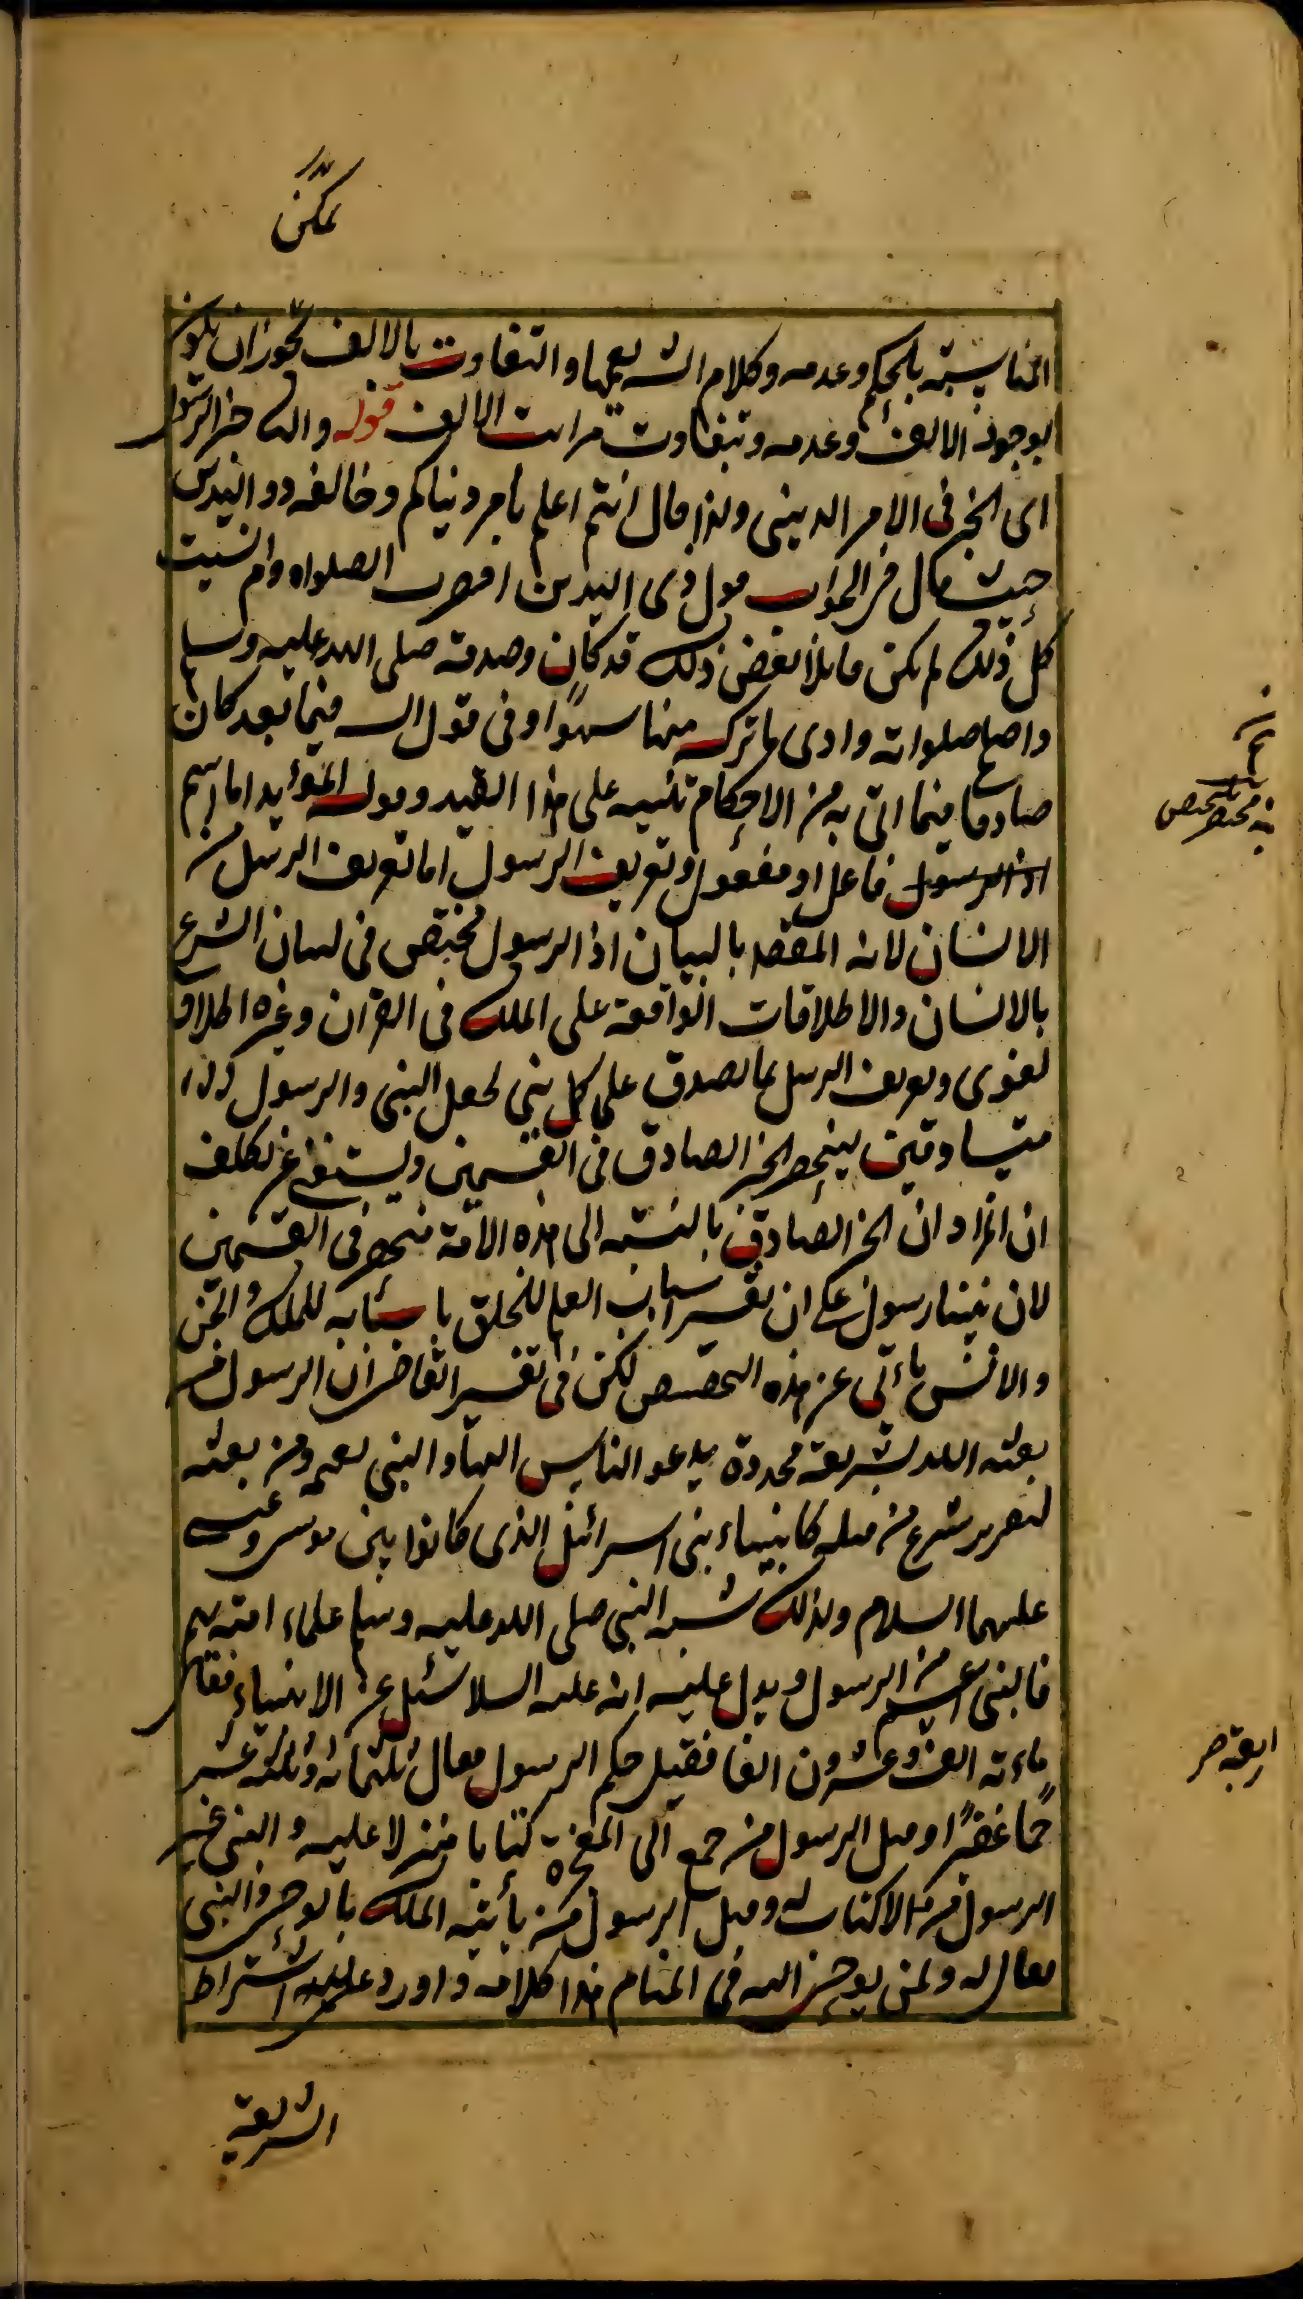 يمكن
المناسبته بالحكم وعدمه وكلام الشه يعمها والتفاوت بالالف يجوز ان يكون
لوجود الالف وعدمه وتبفاوت مراتب الالف قوله والثانى خبر الرسول
اى الخبر فى الامر الدينى ولذا قال انتم اعلم بامر دنياكم وخالفه ذو اليدين
حيث قال فى الجواب قول ذى اليدين اقصرت الصلواه وام نسيت
كل ذلك لم يكن قايلا بعض ذلك قد كان وصدقه صلى الله عليه وسلم
واصلح صلواته وادى ما تركه منها سهوًا وفى قول الش فيما بعد كان
صادقا فيما اتى به من الاحكام تنبيه على هذا القيد وقوله المؤايد اما اسم
فاعل او مفعول وتعريف الرسول اما تعريف الرسل من
الانسان لانه المقصد بالبيان اذ الرسول مختص فى لسان الشرع
بالانسان والاطلاقات الواقعة على الملك فى القران وغيره اطلاق
لغوى وتعريف الرسل بما يصدق على كل نبى لجعل النبى والرسول
متساوقين لينحصر الخبر الصادق فى القسمين ويستغنى عن تكلف
ان المراد ان الخبر الصادق بالنسبه الى هذه الامة منحصر فى القسمين
لان نبينا رسول على ان تفسير اسباب العلم للخلق باسبابه للملك والجن
والانس يأتى عن هذه التخصيص لكن فى تفسير القاضى ان الرسول من
بعثه الله بشريعة مجددة يدعو الناس اليها والنبى يعمه ومن بعثه
لتقرير شرع من قبله كانبياء بنى اسرائيل الذى كانوا بين موسى وعيسى
عليهما السلام ولذلك شبه النبى صلى الله عليه وسلم علماء امته بهم
فالنبى اعم من الرسول ويدل عليه انه عليه السلا سئل عن الانبياء فقال
ماءته الف وعشرون الفا فقيل كم الرسول فقال ثلثمائه وثلثه عشر
جمًا غفيرًا وقيل الرسول من جمع الى المعجزة كتابا منزلا عليه والنبى غير
الرسول من لا كتاب له وقيل الرسول من يأتيه الملك بالوحى والنبى
يقال له ولمن يوحى اليه فى المنام هذا كلامه واورد عليه اشتراط
الشريعة